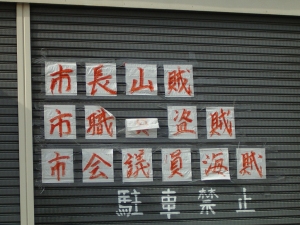 市長山賊
市職 盗賊
市会議員海賊
駐車禁止